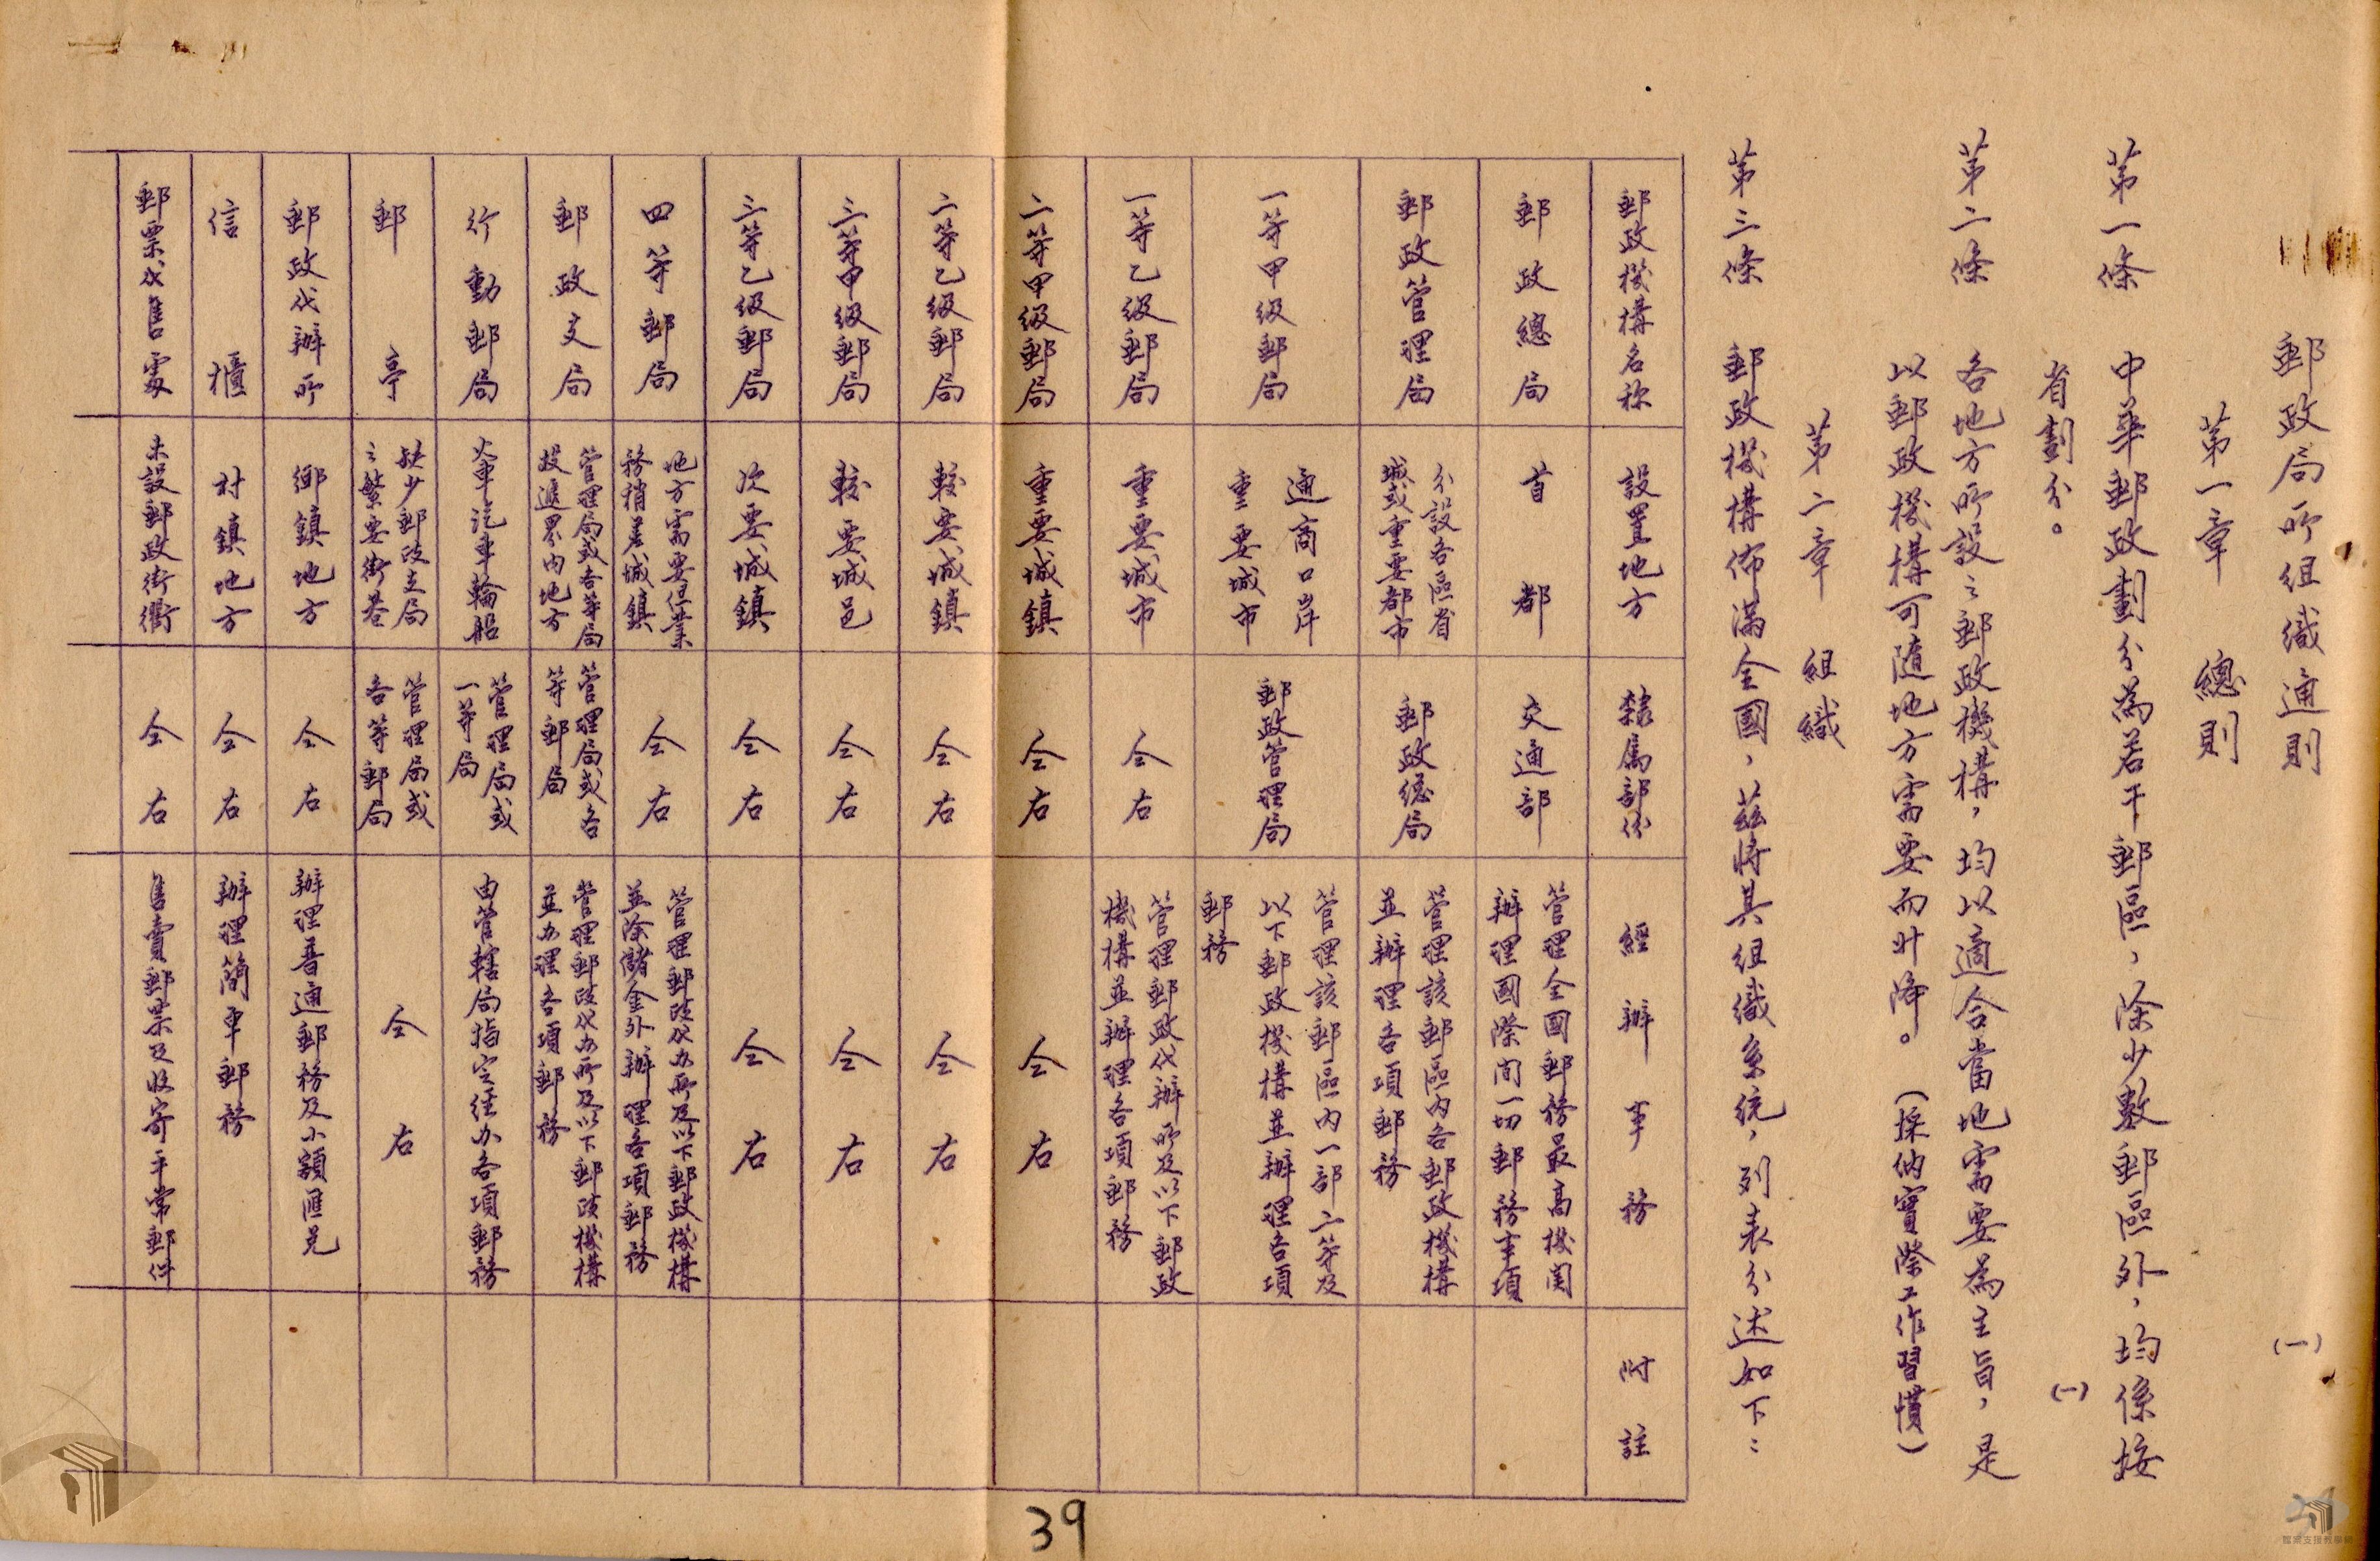 郵政局所組織通則
(一)
第一章　總則
第一條　中華郵政劃分為若干郵區，除少數郵區外，均係按
省劃分。
(一)
第二條　各地方所設之郵政機構，均以適合當地需要為主旨，是
以郵政機構可隨地方需要而升降。（採納實際工作習慣）
第二章　組織
第三條　郵政機構佈滿全國，茲將其組織系統，列表分述如下：
郵政機構名称
設置地方
隸屬部份
經辦事務
附註
郵政總局
首都
交通部
管理全國郵務最高機関
辦理國際间一切郵務事項
郵政管理局
分設各區省
城或重要都市
郵政總局
管理該郵區内各郵政機構
並辦理各項郵務
一等甲級郵局
通商口岸
重要城市
郵政管理局
管理該郵區内一部二等及
以下郵政機構並辦理各項
郵務
一等乙級郵局
重要城市
仝右
管理郵政代辦所及以下郵政
機構並辦理各項郵務
二等甲級郵局
重要城鎮
仝右
仝右
二等乙級郵局
較要城鎮
仝右
仝右
三等甲級郵局
較要城邑
仝右
仝右
三等乙級郵局
次要城鎮
仝右
仝右
四等郵局
地方需要但業
務稍差城鎮
仝右
管理郵政代办所及以下郵政機構
並除儲金外辦理各項郵務
郵政支局
管理局或各等局
投遞界内地方
管理局或各
等郵局
管理郵政代办所及以下郵政機構
並办理各項郵務
行動郵局
火車汽車輪船
管理局或
一等局
由管轄局指定經办各項郵務
郵亭
缺少郵政支局
之繁要街巷
管理局或
各等郵局
仝右
郵政代辦所
鄉鎮地方
仝右
辦理普通郵務及小額匯兑
信櫃
村鎮地方
仝右
辦理簡單郵務
郵票代售處
未設郵政街衢
仝右
售賣郵票及收寄平常郵件
39